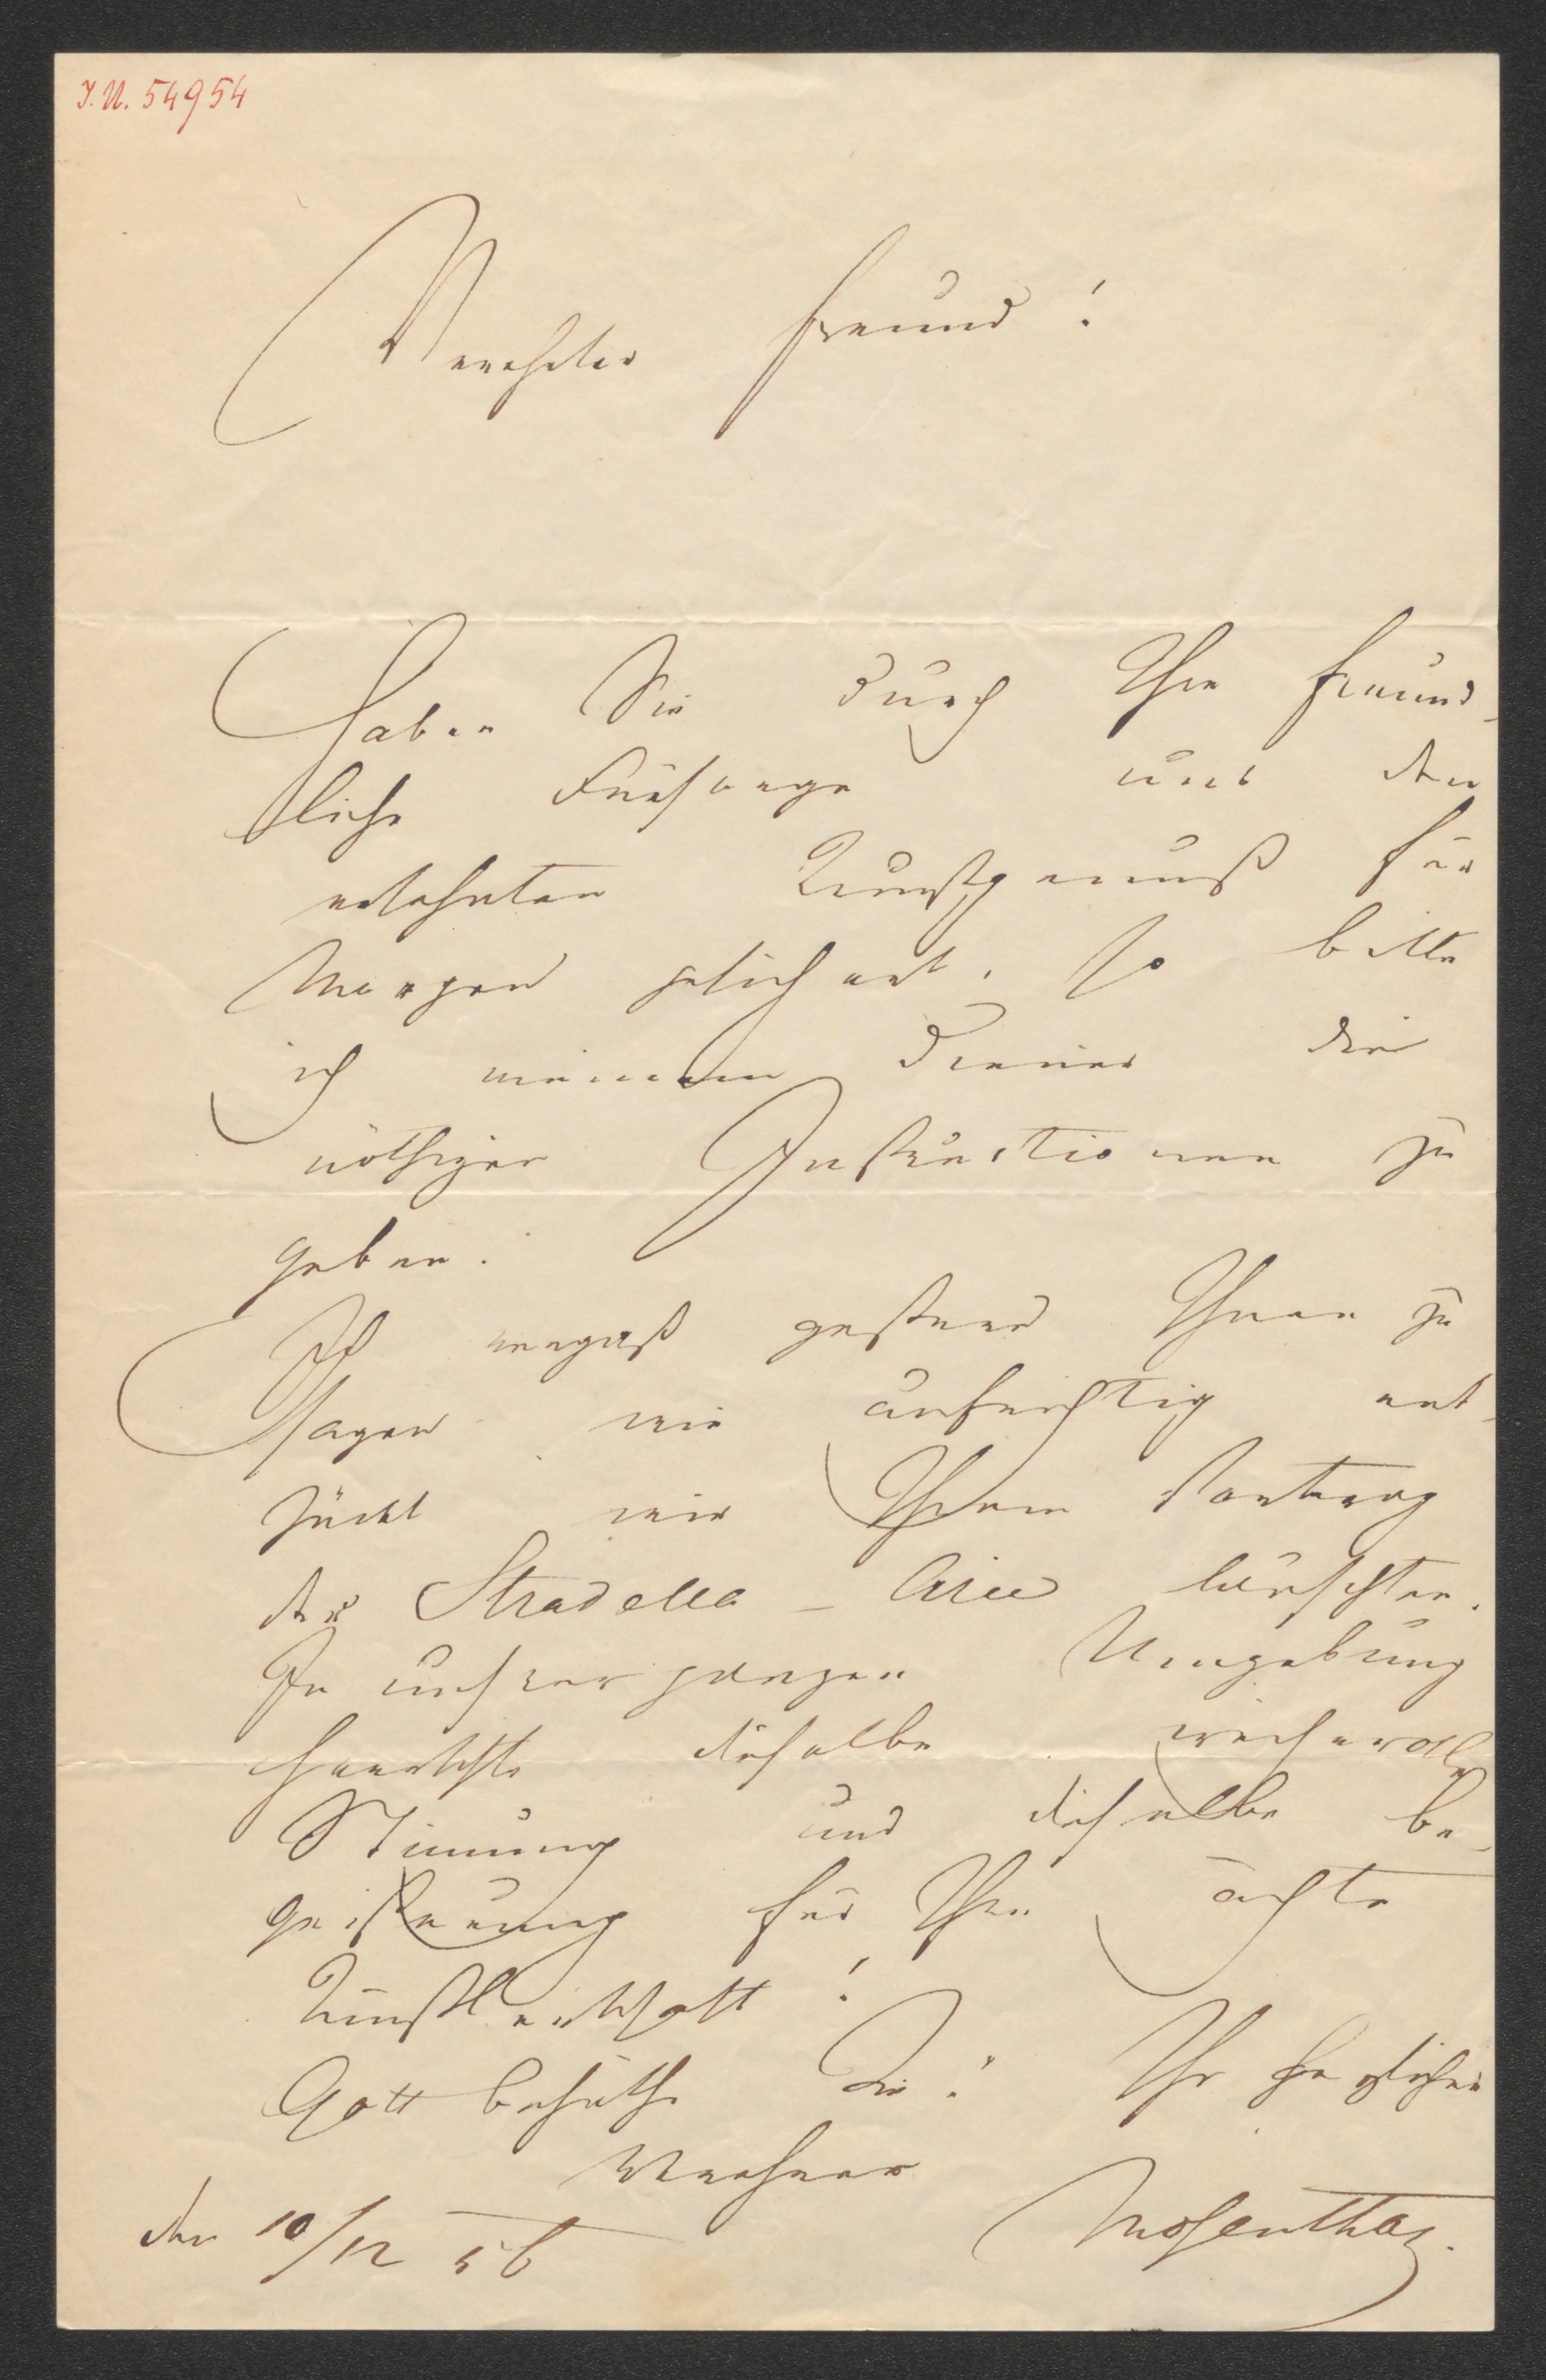 I. N. 54954
Verehrter Freund!
Haben Sie durch Ihre freund-
liche Fürsorge uns den
ersehnten Kunstgenuß für
Morgen gesichert, so bitte
ich meinem Diener die
nöthigen Instructionen zu
geben.
Ich vergaß gestern Ihnen zu
sagen wie aufrichtig ent-
zückt wir Ihrem Vortrag
der Stradella-Arie lauschten.
In unsrer ganzen Umgebung
herrschte dieselbe weihevolle
Stimung und dieselbe be-
geisterung für Ihre ächte
Künstlerschaft!
Gott behüthe Sie! Ihr herzlicher
Verehrer
den 10/12 56 Mosenthal.